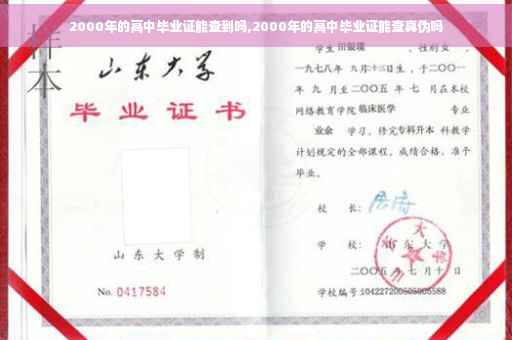 2000年的高中毕业证能查到吗,2000年的高中毕业证能查真伪吗
样本
山东大学
毕业证书
山东大学制
No. 0417584
学生 田银瑞 , 性别女 ,
一九七八年 九月十三日生,于二〇〇一
年 九 月至二〇〇五 年 七 月在本校
网络教育学院 临床医学 专业
业余 学习,修完 专科升本 科教学
计划规定的全部课程,成绩合格,准予
毕业。
校 长:
学 校: 山东大学
二〇〇五年七月十日
学校编号: